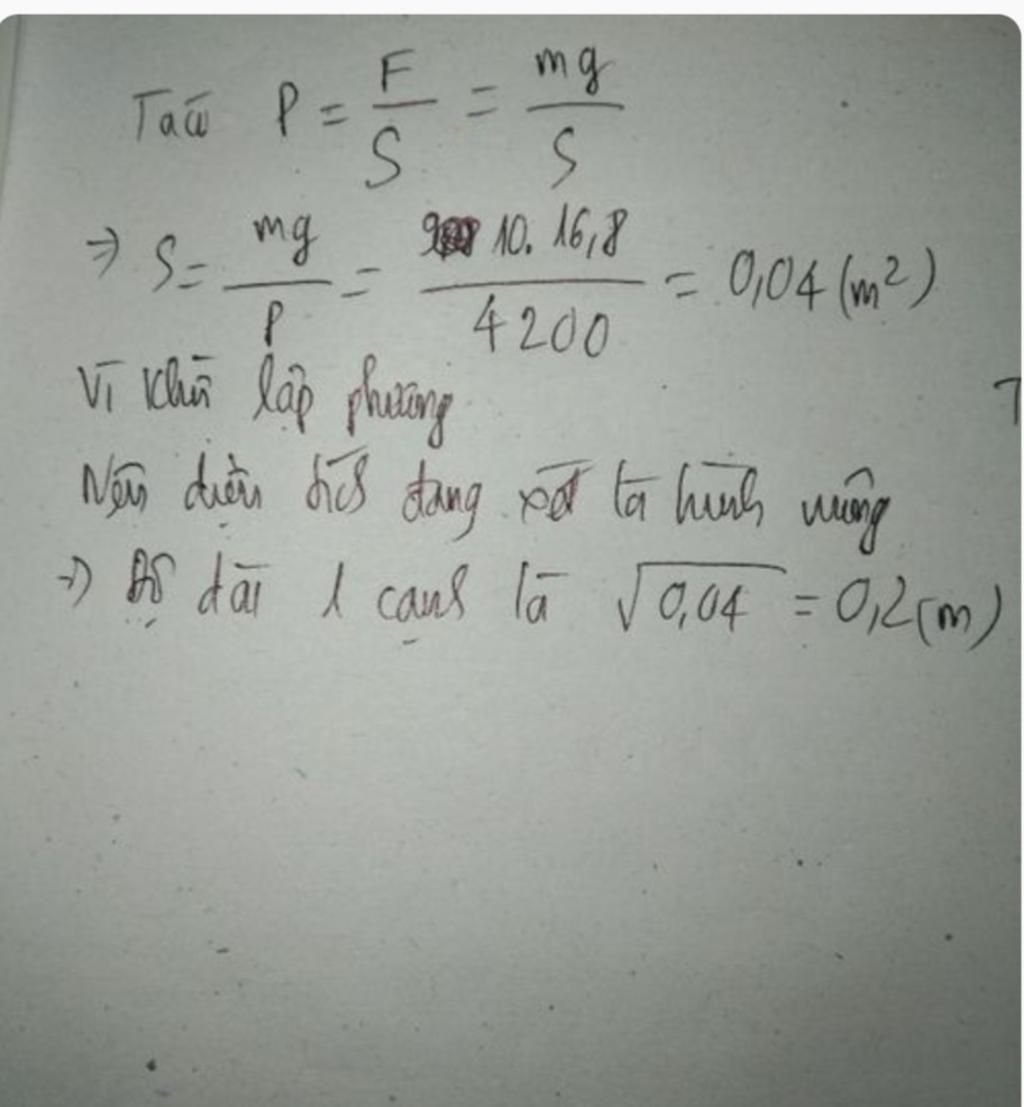 Ta có P = F/S = mg/S
=> S = mg/P = 10.16,8/4200 = 0,04 (m²)
Vì khối lập phương
Nên diện tích đang xét là hình vuông
=> Độ dài 1 cạnh là √0,04 = 0,2 (m)